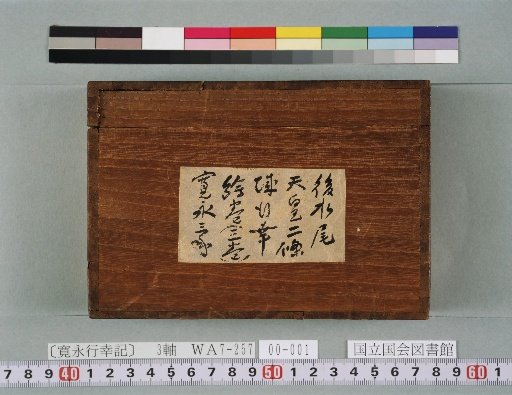 後水尾
天皇二條
城行幸
絵巻三巻
寛永三年
〔寛永行幸記〕 3軸 WA7-257 00-001 国立国会図書館
7 8 9 40 1 2 3 4 5 6 7 8 9 50 1 2 3 4 5 6 7 8 9 60 1